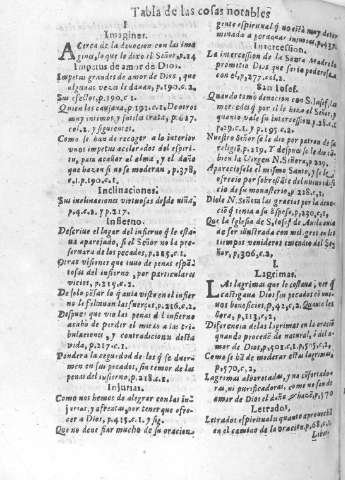 Tabla de las cosas notables
I
Imagines.
Acerca de la deuocion con las ima
gines, lo que le dixo el Señor, p.24
Impetus de amor de Dios.
Impetus grandes de amor de Dios, que
algunas vezes le dauan, p.190.c.2.
Sus efectos. p.190.c.1.
Quien los causaua, p.191.c.1. De otros
muy interiores, y
col.1. y siguientes.
Como se han de recoger a lo interior
vnos impetus acelerados del espiri-
tu, para acallar el alma, y el daño
que hazen si no se moderan, p.378,
c.1. p.190.c.1.
Inclinaciones.
Sus inclinaciones virtuosas desde niña,
p.4.c.2. y p.217.
Infierno.
Describe el lugar del infierno q̃ le esta-
ua aparejado, si el Señor no la pre-
seruara de los pecados, p.215.c.1.
Otras visiones que tuuo de penas espã-
tosas del infierno, por particulares
vicios, p.219.c.2.
De solo pẽsar lo q̃ auia visto en el infier
no le faltauan las fuerças, p.216.c.2.
Despues que vio las penas d̃l infierno
acabò de perder el miedo a las tri-
bulaciones, y contradiciones desta
vida, p.217.c.1.
Pondera la seguridad de los q̃ se duer-
men en sus pecados, sin temor de las
penas del infierno, p.218.c.1.
Injurias.
Como nos hemos de alegrar con las in-
jurias, y afrentas, por tener que ofre-
cer a Dios, p.415.c.1. y sig.
Que no deue fiar mucho de su oracion
gente espiritual q̃ no està muy deter
minado a perdonar injurias, p.437.
Intercession.
La intercession de la Santa Madre la
prometio Dios que seria poderosa
con el, p.277.col.2.
San Iosef.
Quando tomò deuocion con S. Iosef, las
mercedes que por el le hizo el Señor, y
quanto vale su intercession, p.28.c.2
p.29.c.1. y p.195.c.2.
Nuestro Señor se le dio por patron de su
religiõ, p.219. Y despues se le dio tã-
bien la Virgen N. Señora, p.229.
Apareciosele el mismo Santo, y se le
ofrecio por sobrestãte del edificio
de su monasterio, p.228.c.1.
Diole N. Señora las gracias por la deuo
cion q̃ tenia a su Esposo, p.230.c.1.
Que la Iglesia de S. Iosef de Auila auia
de ser ilustrada con mil. en los
tiempos venideros del Se-
ñor, p.306.c.2.
L
Lagrimas.
Las lagrimas que le costaua, ver q̃
castigaua Dios sus pecados cõ nue-
uos beneficios, p.42.c.2. Quanto
bra, p.113.c.2,
Diferencia de las lagrimas en la oraciõ
quando procede de natural, i del a-
mor de Dios, p.502.c.1. p.515.c.2.
Como se hã de moderar estas lagrimas,
p.570.c.2.
Lagrimas alborotadas, y no consertado
ras, ni pacificadoras, como no son de
amor de Dios el daño q̃ hazẽ, p.570
Letrados.
Letrados espirituales quanto aprouechã
en el camino de la oraciõ. p.68.c.1.
Letra-